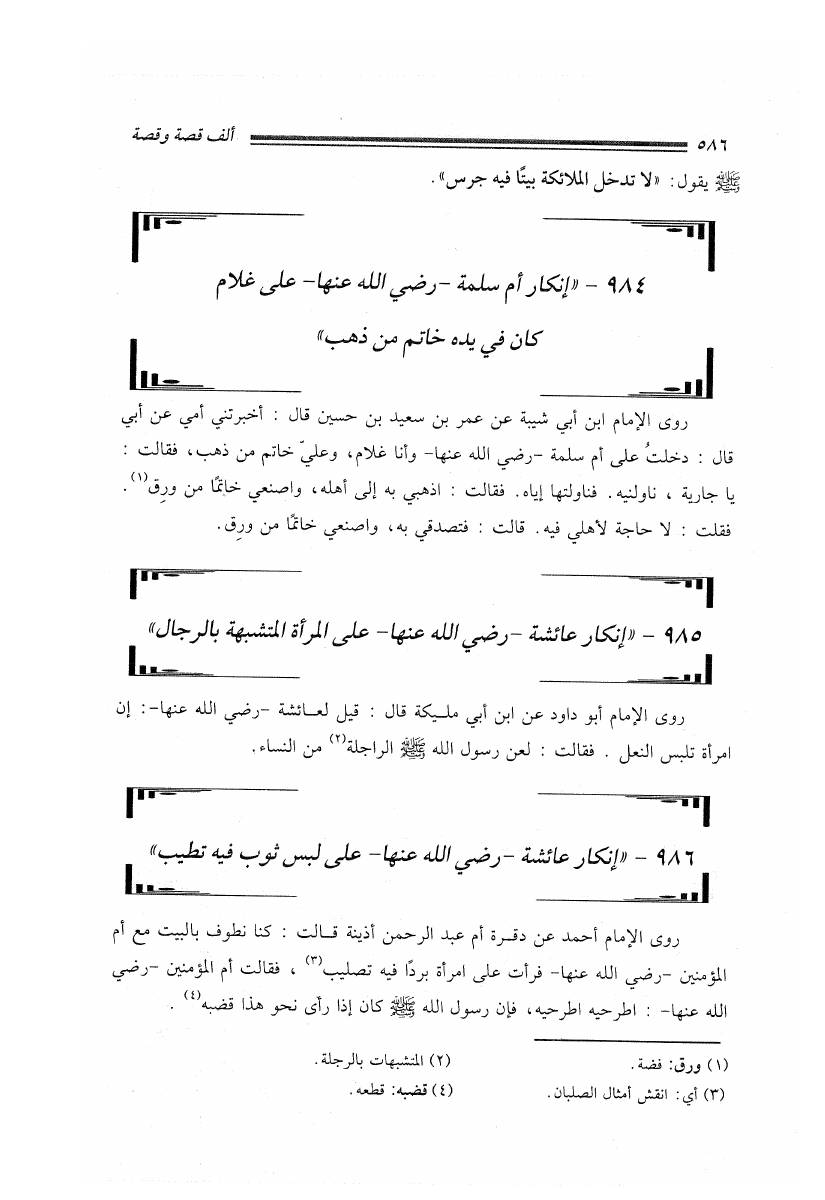 ٥٨٦ ألف قصة وقصة
ﷺ يقول: «لا تدخل الملائكة بيتًا فيه جرس».
٩٨٤ - «إنكار أم سلمة -رضي الله عنها- على غلام
كان في يده خاتم من ذهب»
روى الإمام ابن أبي شيبة عن عمر بن سعيد بن حسين قال : أخبرتني أمي عن أبي
قال : دخلتُ على أم سلمة -رضي الله عنها- وأنا غلام، وعليّ خاتم من ذهب، فقالت :
يا جارية ، ناولنيه. فناولتها إياه. فقالت : اذهبي به إلى أهله، واصنعي خاتمًا من ورِق(١).
فقلت : لا حاجة لأهلي فيه. قالت : فتصدقي به، واصنعي خاتمًا من ورِق.
٩٨٥ - «إنكار عائشة -رضي الله عنها- على المرأة المتشبهة بالرجال»
روى الإمام أبو داود عن ابن أبي مليكة قال : قيل لعائشة -رضي الله عنها-: إن
امرأة تلبس النعل . فقالت : لعن رسول الله ﷺ الراجلة(٢) من النساء.
٩٨٦ - «إنكار عائشة -رضي الله عنها- على لبس ثوب فيه تطيب»
روى الإمام أحمد عن دقرة أم عبد الرحمن أذينة قالت : كنا نطوف بالبيت مع أم
المؤمنين -رضي الله عنها- فرأت على امرأة بردًا فيه تصليب(٣) ، فقالت أم المؤمنين -رضي
الله عنها- : اطرحيه اطرحيه، فإن رسول الله ﷺ كان إذا رأى نحو هذا قضبه(٤) .
(١) ورق: فضة. (٢) المتشبهات بالرجلة.
(٣) أي: انقش أمثال الصلبان. (٤) قضبه: قطعه.